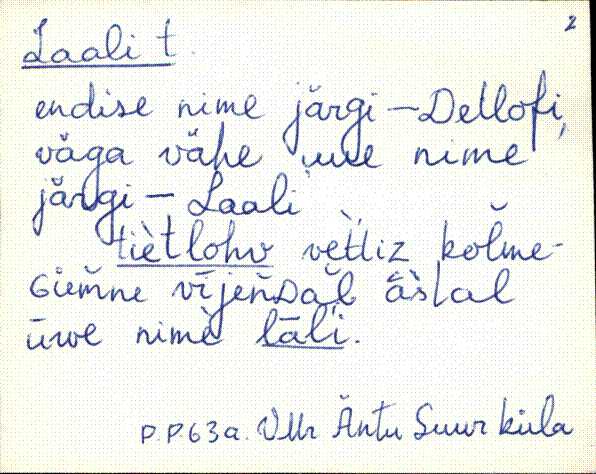 2
Laali t.
endise nime järgi – Detlofi,
väga vähe uue nime
järgi – Laali
tiètlohv vèttiz kolme-
Giem̆ne vījeñDal ǟstal
ūwe nimè lāĺi.
P.P. 63 a. VMr Äntu Suurküla